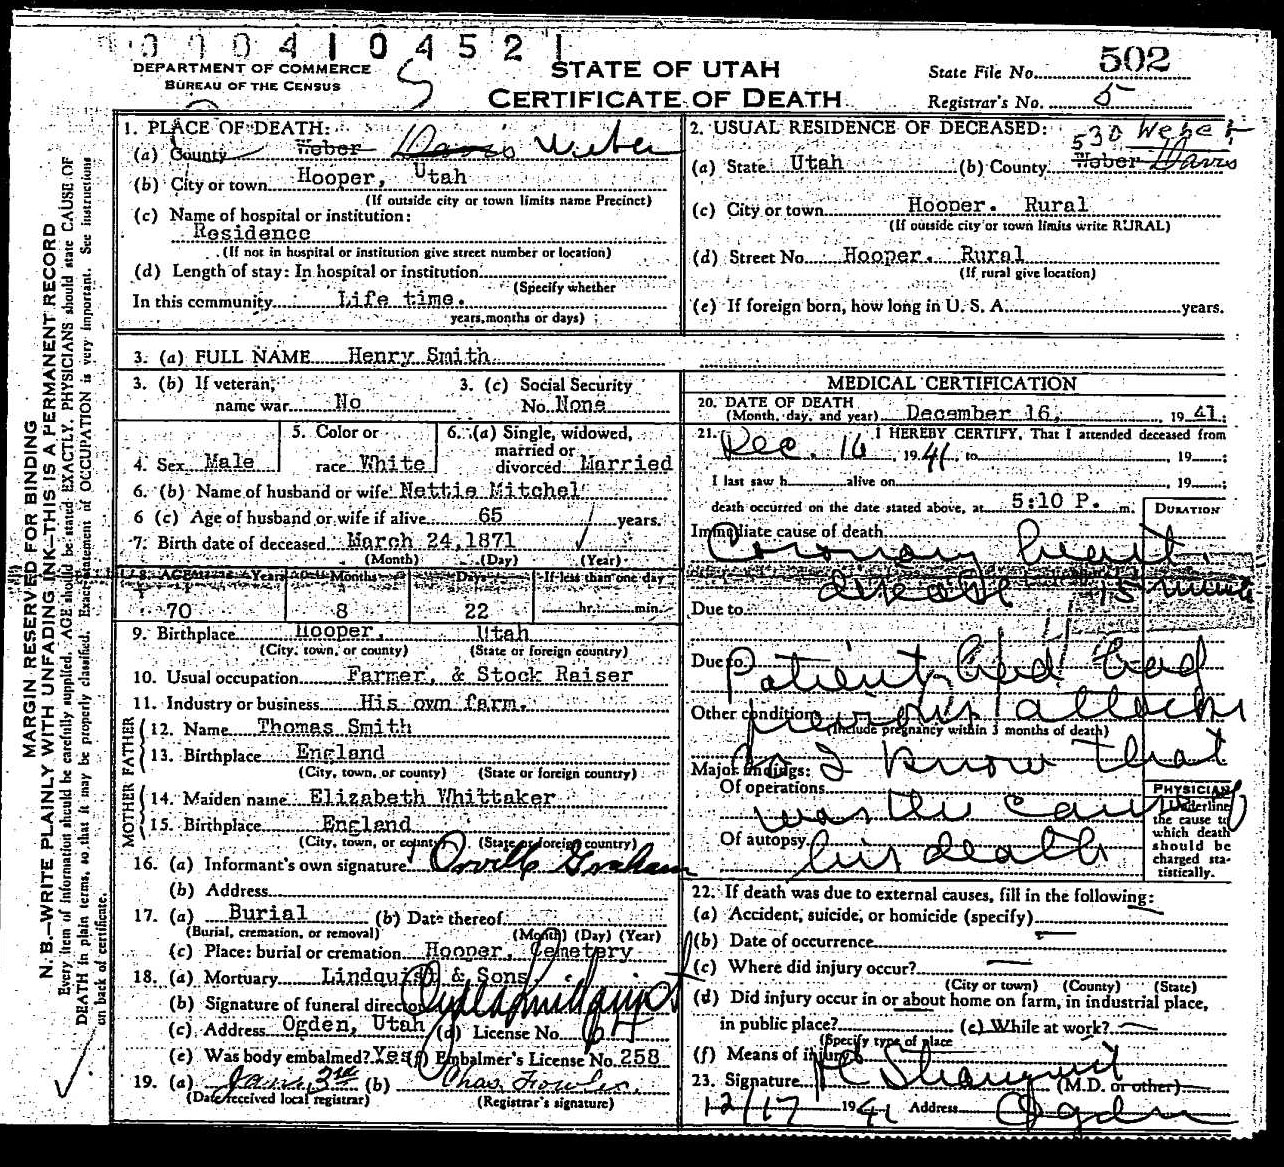 0004104521
DEPARTMENT OF COMMERCE
BUREAU OF THE CENSUS
STATE OF UTAH
CERTIFICATE OF DEATH
State File No. 502
Registrar's No. 5
MARGIN RESERVED FOR BINDING
N. B.—WRITE PLAINLY WITH UNFADING INK—THIS IS A PERMANENT RECORD
Every item of information should be carefully supplied. AGE should be stated EXACTLY. PHYSICIANS should state CAUSE OF
DEATH in plain terms, so that it may be properly classified. Exact statement of OCCUPATION is very important. See instructions
on back of certificate.
1. PLACE OF DEATH:
(a) County Weber Davis Weber
(b) City or town Hooper, Utah
(If outside city or town limits name Precinct)
(c) Name of hospital or institution:
Residence
(If not in hospital or institution give street number or location)
(d) Length of stay: In hospital or institution
(Specify whether
In this community Life time.
years, months or days)
2. USUAL RESIDENCE OF DECEASED: 530 Weber
(a) State Utah (b) County Weber Davis
(c) City or town Hooper. Rural
(If outside city or town limits write RURAL)
(d) Street No. Hooper. Rural
(If rural give location)
(e) If foreign born, how long in U. S. A. years.
3. (a) FULL NAME Henry Smith
3. (b) If veteran, name war No
3. (c) Social Security No. None
4. Sex Male
5. Color or race White
6. (a) Single, widowed, married or divorced Married
6. (b) Name of husband or wife Nettie Mitchel
6 (c) Age of husband or wife if alive 65 years.
7. Birth date of deceased March 24, 1871
(Month) (Day) (Year)
8. AGE Years Months Days If less than one day
70 8 22 hr. min.
9. Birthplace Hooper, Utah
(City, town, or county) (State or foreign country)
10. Usual occupation Farmer, & Stock Raiser
11. Industry or business His own farm.
FATHER
12. Name Thomas Smith
13. Birthplace England
(City, town, or county) (State or foreign country)
MOTHER
14. Maiden name Elizabeth Whittaker
15. Birthplace England
(City, town, or county) (State or foreign country)
16. (a) Informant's own signature Orville Graham
(b) Address
17. (a) Burial (b) Date thereof
(Burial, cremation, or removal) (Month) (Day) (Year)
(c) Place: burial or cremation Hooper, Cemetery
18. (a) Mortuary Lindquist & Sons
(b) Signature of funeral director
(c) Address Ogden, Utah (d) License No. 64
(e) Was body embalmed? Yes (f) Embalmer's License No. 258
19. (a) Jan. 3rd (b) Chas. Fowler.
(Date received local registrar) (Registrar's signature)
MEDICAL CERTIFICATION
20. DATE OF DEATH
(Month, day, and year) December 16, 1941;
21. I HEREBY CERTIFY, That I attended deceased from
Dec. 16, 1941, to , 19 ;
I last saw h alive on , 19 ;
death occurred on the date stated above, at 5:10 P. m.
DURATION
Immediate cause of death
Coronary heart
disease 15 minute
Due to
Due to
Patient had had
Other conditions
previous attacks
(Include pregnancy within 3 months of death)
so I know that
Major findings:
Of operations
was the cause of
Of autopsy
his death
PHYSICIAN
Underline
the cause to
which death
should be
charged sta-
tistically.
22. If death was due to external causes, fill in the following:
(a) Accident, suicide, or homicide (specify)
(b) Date of occurrence
(c) Where did injury occur?
(City or town) (County) (State)
(d) Did injury occur in or about home on farm, in industrial place,
in public place? (e) While at work?
(Specify type of place
(f) Means of injury
23. Signature (M.D. or other)
12/17 1941 Address Ogden